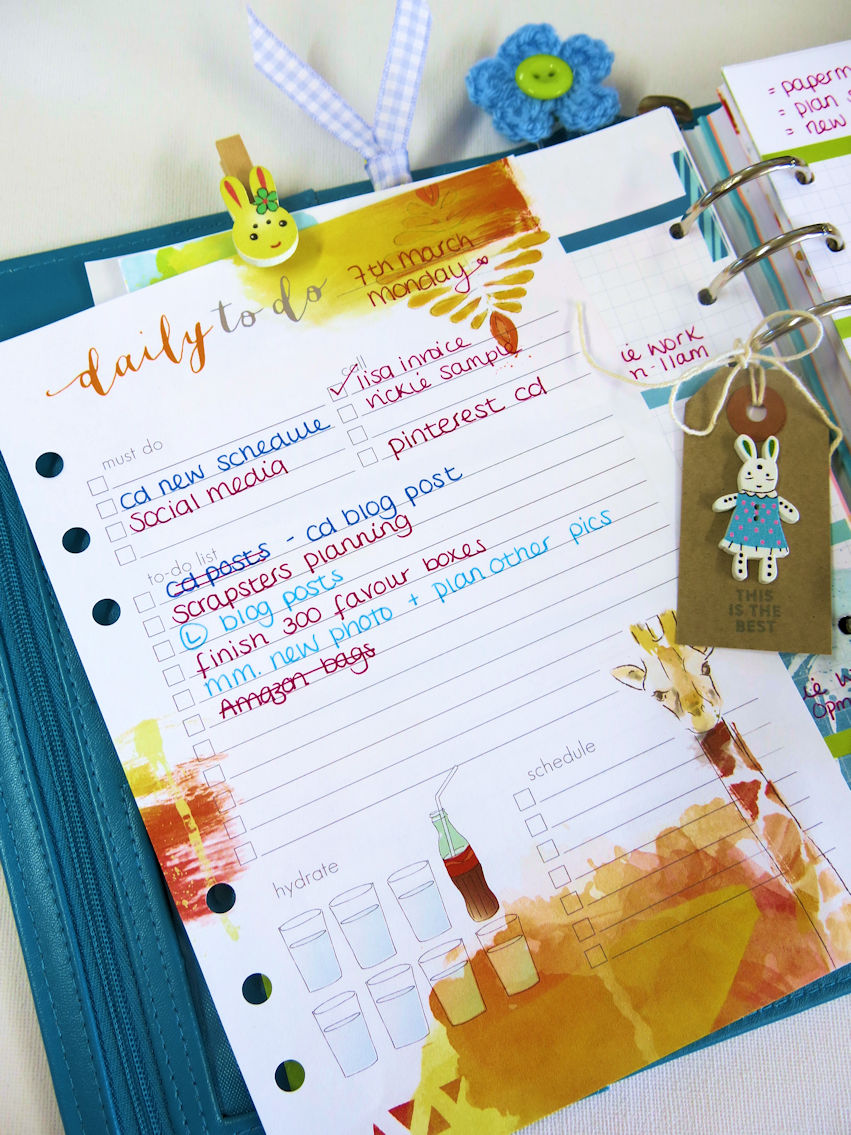 daily to do
7th march
monday
must do
cd new schedule
social media
call
lisa invoice
vickie sample
pinterest cd
to-do list
cd posts - cd blog post
scrapsters planning
L blog posts
finish 300 favour boxes
mm. new photo + plan other pics
Amazon bags
hydrate
schedule
= paperm
= plan
= new
ie work
n-11am
THIS
IS THE
BEST
ie w
0pm